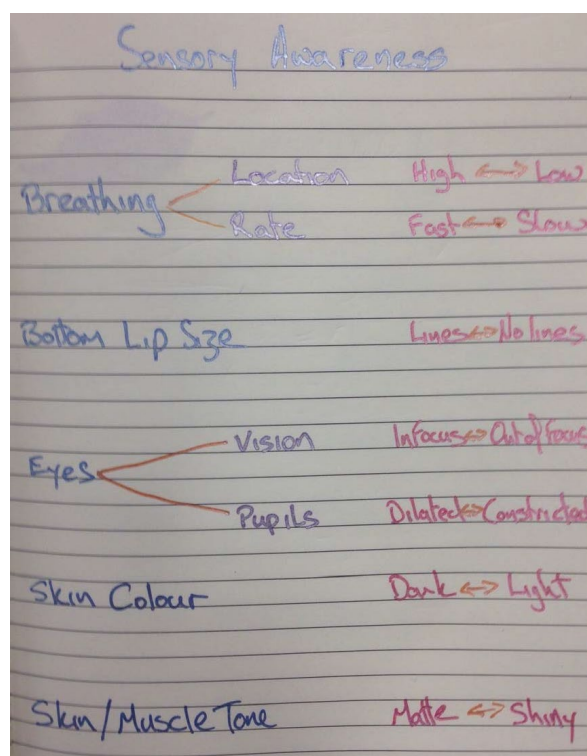 Sensory Awareness
Location High ↔ Low
Breathing
Rate Fast ↔ Slow
Bottom Lip Size Lines ↔ No lines
Vision In Focus ↔ Out of Focus
Eyes
Pupils Dilated ↔ Constricted
Skin Colour Dark ↔ Light
Skin/Muscle Tone Matte ↔ Shiny